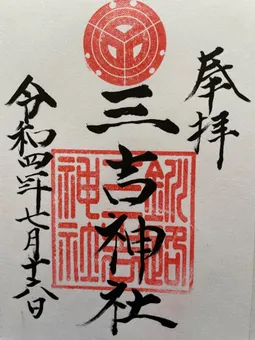 奉拝
三吉神社
釧路
神社
令和四年七月十六日